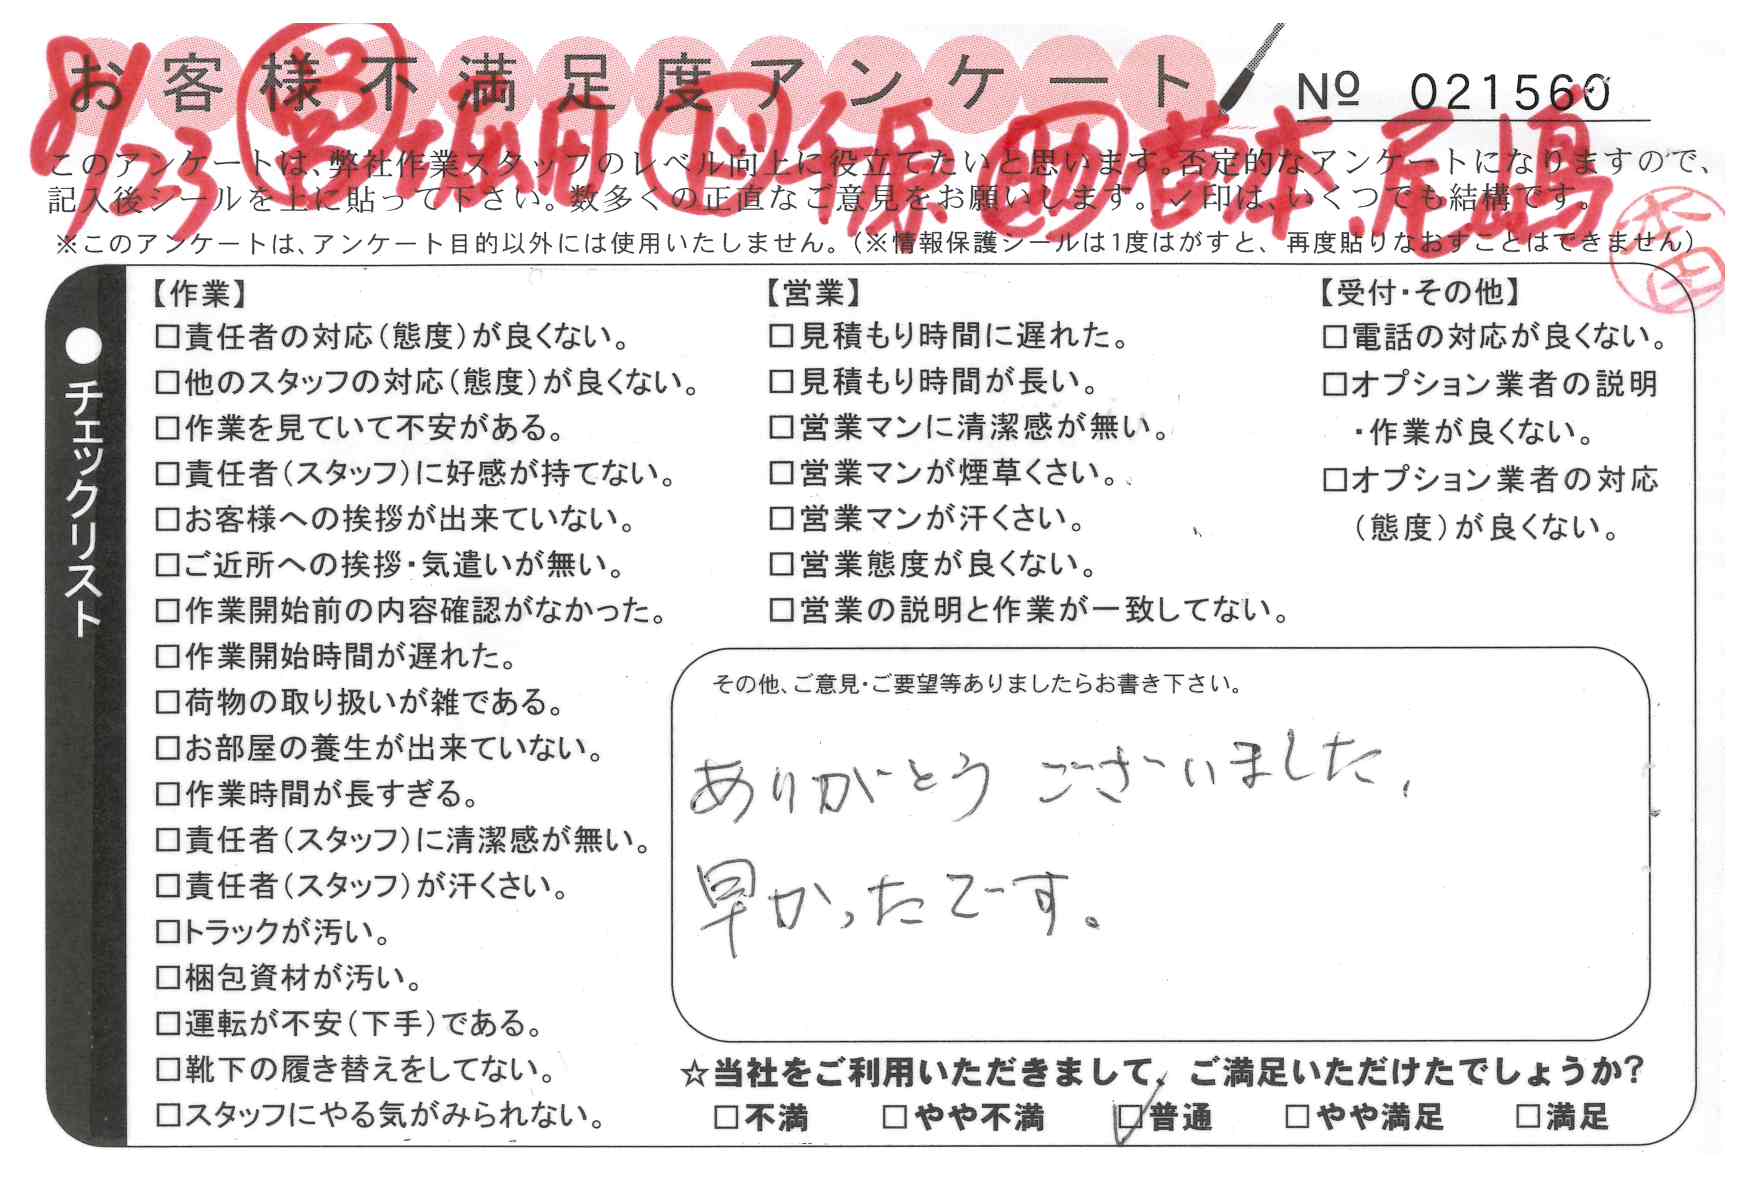 お客様不満足度アンケート
№ 021560
8/23 営 堀田 ド 千葉 助 岩本、尾嶋
このアンケートは、弊社作業スタッフのレベル向上に役立てたいと思います。否定的なアンケートになりますので、
記入後シールを上に貼って下さい。数多くの正直なご意見をお願いします。✓印は、いくつでも結構です。
※このアンケートは、アンケート目的以外には使用いたしません。(※情報保護シールは1度はがすと、再度貼りなおすことはできません)
●チェックリスト
【作業】
□責任者の対応(態度)が良くない。
□他のスタッフの対応(態度)が良くない。
□作業を見ていて不安がある。
□責任者(スタッフ)に好感が持てない。
□お客様への挨拶が出来ていない。
□ご近所への挨拶・気遣いが無い。
□作業開始前の内容確認がなかった。
□作業開始時間が遅れた。
□荷物の取り扱いが雑である。
□お部屋の養生が出来ていない。
□作業時間が長すぎる。
□責任者(スタッフ)に清潔感が無い。
□責任者(スタッフ)が汗くさい。
□トラックが汚い。
□梱包資材が汚い。
□運転が不安(下手)である。
□靴下の履き替えをしてない。
□スタッフにやる気がみられない。
【営業】
□見積もり時間に遅れた。
□見積もり時間が長い。
□営業マンに清潔感が無い。
□営業マンが煙草くさい。
□営業マンが汗くさい。
□営業態度が良くない。
□営業の説明と作業が一致してない。
【受付・その他】
□電話の対応が良くない。
□オプション業者の説明
・作業が良くない。
□オプション業者の対応
(態度)が良くない。
その他、ご意見・ご要望等ありましたらお書き下さい。
ありがとうございました、
早かったです。
☆当社をご利用いただきまして、ご満足いただけたでしょうか?
□不満 □やや不満 ☑普通 □やや満足 □満足